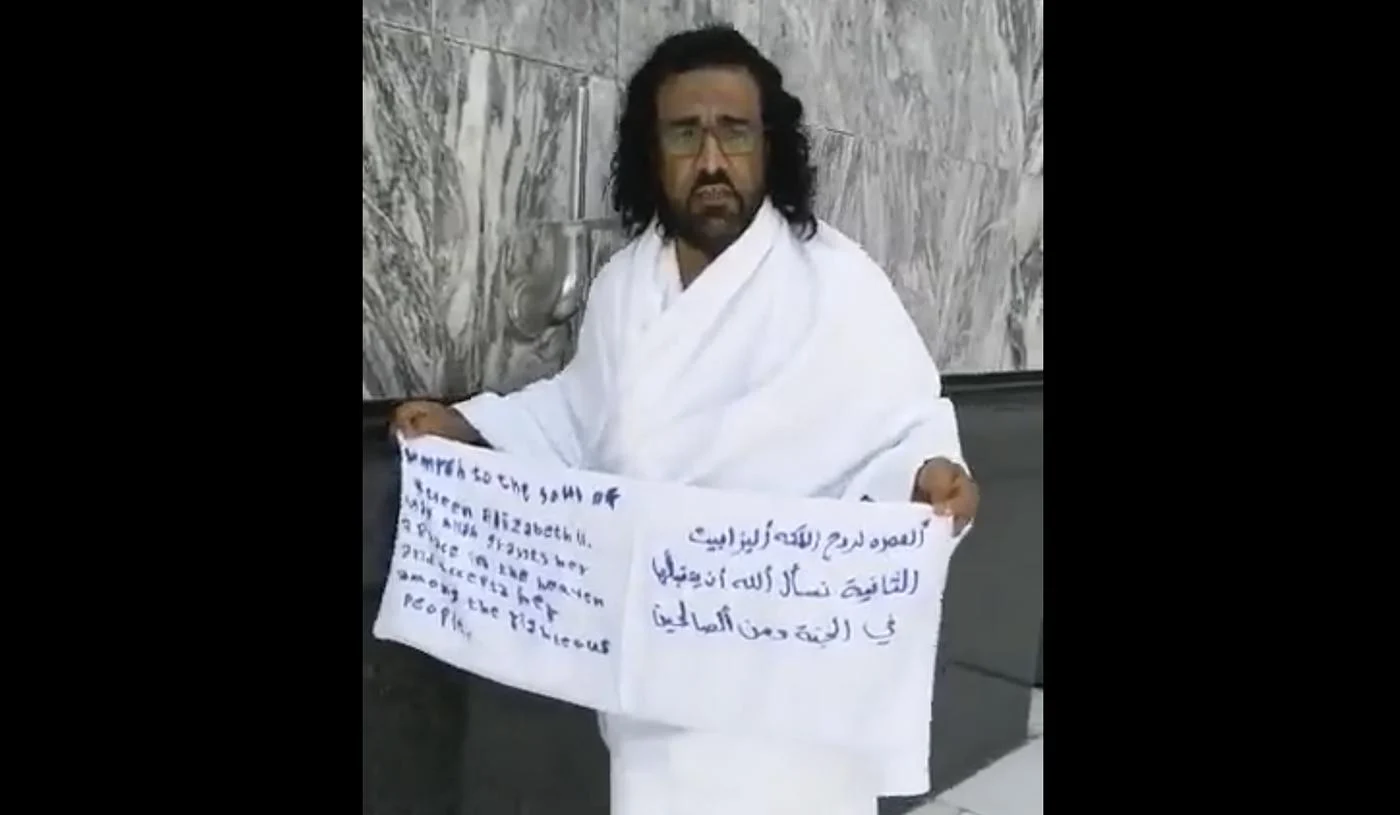 umrah to the soul of
Queen Elizabeth II.
may Allah grants her
a place in the heaven
and accepts her
among the righteous
people.
ألعمره لروح الملكه أليزابيت
الثانية نسأل ألله أن يتقبلها
في الجنة ومن ألصالحين